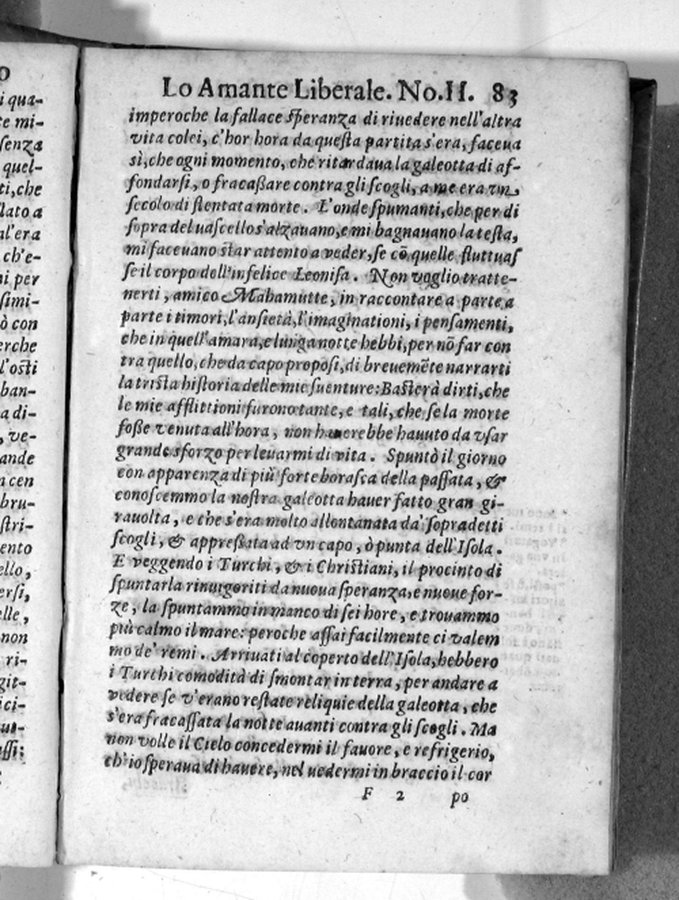 Lo Amante Liberale. No.II. 83
imperoche la fallace ſperanza di riuedere nell'altra
vita colei, c'hor hora da queſta partita s'era, faceua
sì, che ogni momento, che ritardaua la galeotta di af-
fondarſi, o fracaßare contra gli ſcogli, a me era vn
ſecolo di ſtentata morte. L'onde ſpumanti, che per di
ſopra del uaſcello s'alzauano, e mi bagnauano la teſta,
mi faceuano ſtar attento a veder, ſe cõ quelle fluttuaſ
ſe il corpo dell'infelice Leoniſa. Non voglio tratte-
nerti, amico Mahamutte, in raccontare a parte a
parte i timori, l'anſietà, l'imaginationi, i penſamenti,
che in quell'amara, e lunga notte hebbi, per nõ far con
tra quello, che da capo propoſi, di breuemẽte narrarti
la triſta hiſtoria delle mie ſuenture: Baſterà dirti, che
le mie afflittioni furono tante, e tali, che ſe la morte
foße venuta all'hora, non hauerebbe hauuto da vſar
grande sforzo per leuarmi di vita. Spuntò il giorno
con apparenza di più forte boraſca della paſſata, &
conoſcemmo la noſtra galeotta hauer fatto gran gi-
rauolta, e che s'era molto allontanata da' ſopradetti
ſcogli, & appreßata ad vn capo, ò punta dell'Iſola.
E veggendo i Turchi, & i Chriſtiani, il procinto di
ſpuntarla rinuigoriti da nuoua ſperanza, e nuoue for-
ze, la ſpuntammo in manco di ſei hore, e trouammo
più calmo il mare: peroche aſſai facilmente ci valem
mo de' remi. Arriuati al coperto dell'Iſola, hebbero
i Turchi comodità di ſmontar in terra, per andare a
vedere ſe v'erano reſtate reliquie della galeotta, che
s'era fracaſſata la notte auanti contra gli ſcogli. Ma
non volle il Cielo concedermi il fauore, e refrigerio,
ch'io ſperaua di hauere, nel uedermi in braccio il cor
F 2 po